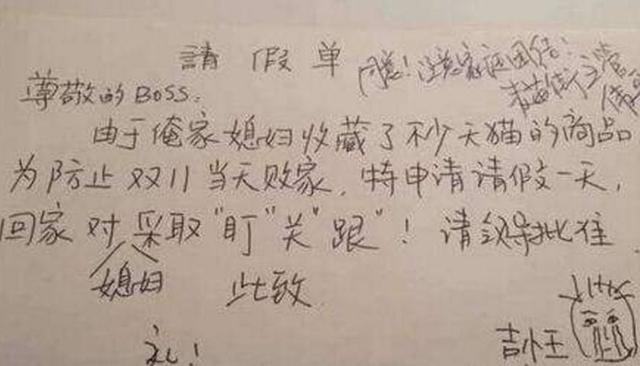 請假单
同意！注意家庭团结！
尊敬的BOSS：
由于俺家媳妇收藏了不少天猫的商品
为防止双11当天败家，特申请请假一天，
回家对媳妇采取"盯""关""跟"！请领导批准
此致
礼！